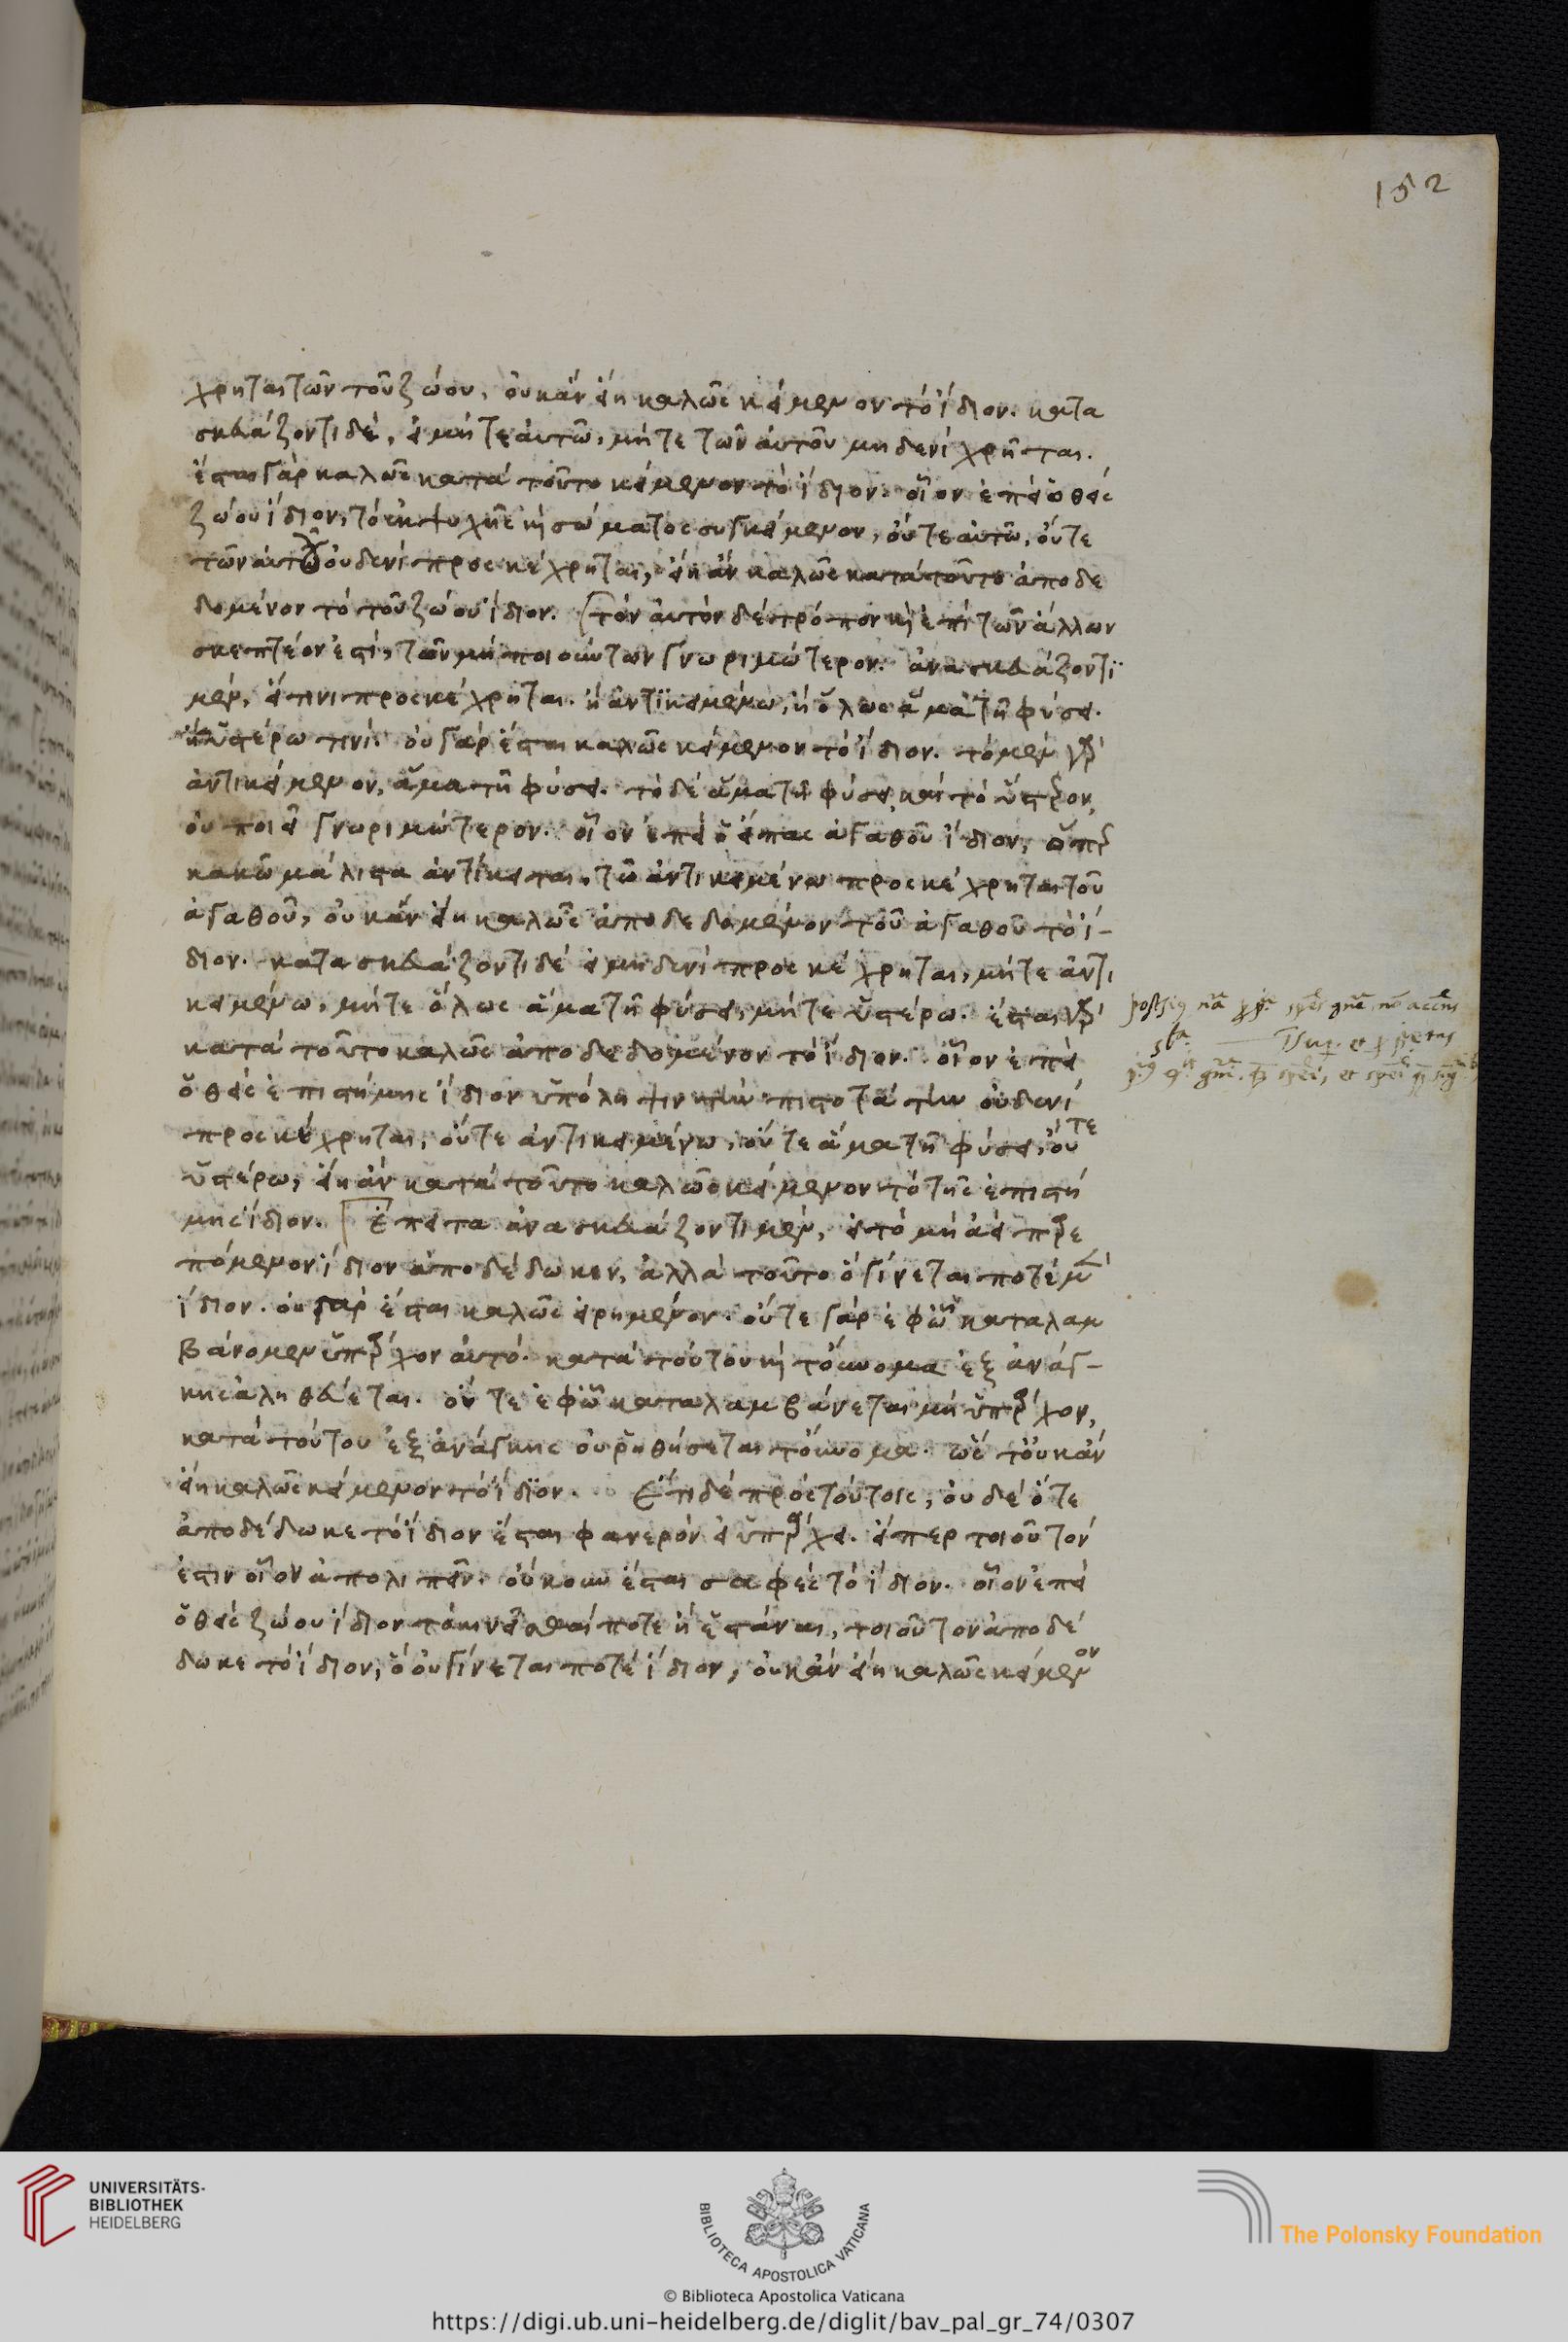 152
χρηται τῶν τοῦ ζώου, οὐκ ἂν εἴη καλῶς κείμενον τὸ ἴδιον. κατα
σκευάζοντι δέ, εἰ μήτε αὐτῶ, μήτε τῶν αὐτοῦ μηδενὶ χρῆται.
ἔσται γὰρ καλῶς κατὰ τοῦτο κείμενον τὸ ἴδιον. οἷον ἐπεὶ ὁ θεὶς
ζώου ἴδιον, τὸ ἐκ ψυχῆς κὶ σώματος συγκείμενον, οὔτε αὐτῶ, οὔτε
τῶν αὐτοῦ οὐδενὶ προσκέχρηται, εἴη ἂν καλῶς κατὰ τοῦτο ἀποδε
δομένον τὸ τοῦ ζώου ἴδιον. τὸν αὐτὸν δὲ τρόπον κὶ ἐπὶ τῶν ἄλλων
σκεπτέον ἐστὶ, τῶν μὴ ποιούντων γνωριμώτερον. ἀνασκευάζοντι
μὲν, εἴ τινι προσκέχρηται. ἢ ἀντικειμένω, ἢ ὅλως ἅμα τῆ φύσει.
ἢ ὑστέρω τινί. οὐ γὰρ ἔσται καλῶς κείμενον τὸ ἴδιον. τὸ μὲν γὰρ
ἀντικείμενον, ἅμα τῆ φύσει. τὸ δὲ ἅμα τῆ φύσει καὶ τὸ ὕστερον,
οὐ ποιεῖ γνωριμώτερον. οἷον ἐπεὶ ὁ εἴπας ἀγαθοῦ ἴδιον, ὅπερ
κακῶ μάλιστα ἀντίκειται, τῶ ἀντικειμένω προσκέχρηται τοῦ
ἀγαθοῦ, οὐκ ἂν εἴη καλῶς ἀποδεδομένον τοῦ ἀγαθοῦ τὸ ἴ-
διον. κατασκευάζοντι δὲ εἰ μηδενὶ προσκέχρηται, μήτε ἀντι
κειμένω, μήτε ὅλως ἅμα τῆ φύσει, μήτε ὑστέρω. ἔσται γὰρ
κατὰ τοῦτο καλῶς ἀποδεδομένον τὸ ἴδιον. οἷον ἐπεὶ
ὁ θεὶς ἐπιστήμης ἴδιον ὑπόληψιν τὴν πιστοτάτην οὐδενὶ
προσκέχρηται, οὔτε ἀντικειμένω, οὔτε ἅμα τῆ φύσει, οὔτε
ὑστέρω, εἴη ἂν κατὰ τοῦτο καλῶς κείμενον τὸ τῆς ἐπιστή
μης ἴδιον. Ἔπειτα ἀνασκευάζοντι μὲν, εἰ τὸ μὴ ἀεὶ παρε
πόμενον ἴδιον ἀποδέδωκεν, ἀλλὰ τοῦτο ὃ γίνεται ποτὲ μὴ
ἴδιον. οὐ γὰρ ἔσται καλῶς εἰρημένον. οὔτε γὰρ ἐφ' ὧ καταλαμ
βάνομεν ὑπάρχον αὐτό. κατὰ τούτου κὶ τὸ ὄνομα ἐξ ἀνάγ-
κης ἀληθεύεται. οὔτε ἐφ' ὧ καταλαμβάνεται μὴ ὑπάρχον,
κατὰ τούτου ἐξ ἀνάγκης οὐ ῥηθήσεται τὸ ὄνομα. ὥστ' οὐκ ἂν
εἴη καλῶς κείμενον τὸ ἴδιον. Ἔτι δὲ πρὸς τούτοις, οὐδὲ ὅτε
ἀποδέδωκε τὸ ἴδιον ἔσται φανερὸν εἰ ὑπάρχει. εἴπερ τοιοῦτόν
ἐστιν οἷον ἀπολιπεῖν. οὔκουν ἔσται σαφὲς τὸ ἴδιον. οἷον ἐπεὶ
ὁ θεὶς ζώου ἴδιον τὸ κινεῖσθαί ποτε ἢ ἑστάναι, τοιοῦτον ἀποδέ
δωκε τὸ ἴδιον, ὃ οὐ γίνεται ποτὲ ἴδιον, οὐκ ἂν εἴη καλῶς κείμενον
UNIVERSITÄTS-
BIBLIOTHEK
HEIDELBERG
BIBLIOTECA APOSTOLICA VATICANA
© Biblioteca Apostolica Vaticana
The Polonsky Foundation
https://digi.ub.uni-heidelberg.de/diglit/bav_pal_gr_74/0307